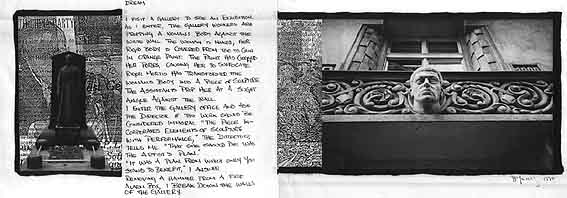 DREAM
I VISIT A GALLERY TO SEE AN EXHIBITION
AS I ENTER, THE GALLERY WORKERS ARE
PROPPING A WOMAN'S BODY AGAINST THE
WHITE WALL. THE WOMAN IS NAKED, HER
RIGID BODY IS COVERED FROM TOE TO CHIN
IN ORANGE PAINT. THE PAINT HAS CLOGGED
HER PORES, CAUSING HER TO SUFFOCATE.
RIGOR MORTIS HAS TRANSFORMED THE
WOMAN'S BODY INTO A PIECE OF SCULPTURE
THE ASSISTANTS PROP HER AT A SLIGHT
ANGLE AGAINST THE WALL.
I ENTER THE GALLERY OFFICE AND ASK
THE DIRECTOR IF THE WORK COULD BE
CONSIDERED IMMORAL. "THE PIECE IN-
CORPORATES ELEMENTS OF SCULPTURE
WITH PERFORMANCE," THE DIRECTOR
TELLS ME. "THAT SHE SHOULD DIE WAS
THE ARTIST'S PLAN."
"IT WAS A PLAN FROM WHICH ONLY YOU
STAND TO BENEFIT," I ANSWER
REMOVING A HAMMER FROM A FIRE
ALARM BOX, I BREAK DOWN THE WALLS
OF THE GALLERY.